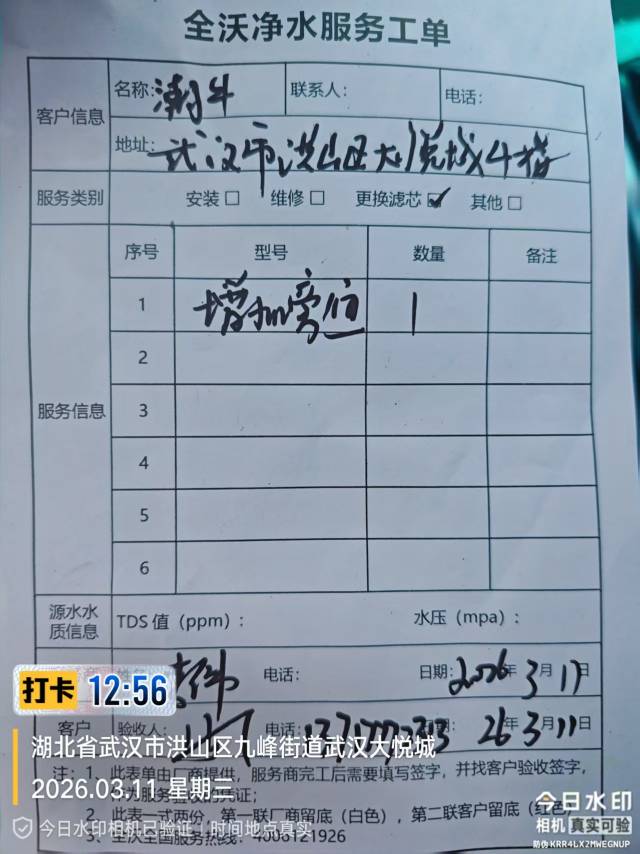 全沃净水服务工单
客户信息
名称: 潮牛 联系人: 电话:
地址: 武汉市洪山区大悦城4楼
服务类别 安装□ 维修□ 更换滤芯☑ 其他□
服务信息
序号 型号 数量 备注
1 增加旁位 1
2
3
4
5
6
源水水质信息 TDS值(ppm): 水压(mpa):
电话: 日期: 2026年3月11日
客户 验收人: 电话: 26年3月11日
注:1、此表单由厂商提供,服务商完工后需要填写签字,并找客户验收签字,
作为服务验收的凭证;
2、此表一式两份,第一联厂商留底(白色),第二联客户留底(红色)
3、全沃全国服务热线:4006121926
打卡 12:56
湖北省武汉市洪山区九峰街道武汉大悦城
2026.03.11 星期三
今日水印相机已验证 | 时间地点真实
今日水印
相机 真实可验
防伪 KRR4LX2MWEGNUP